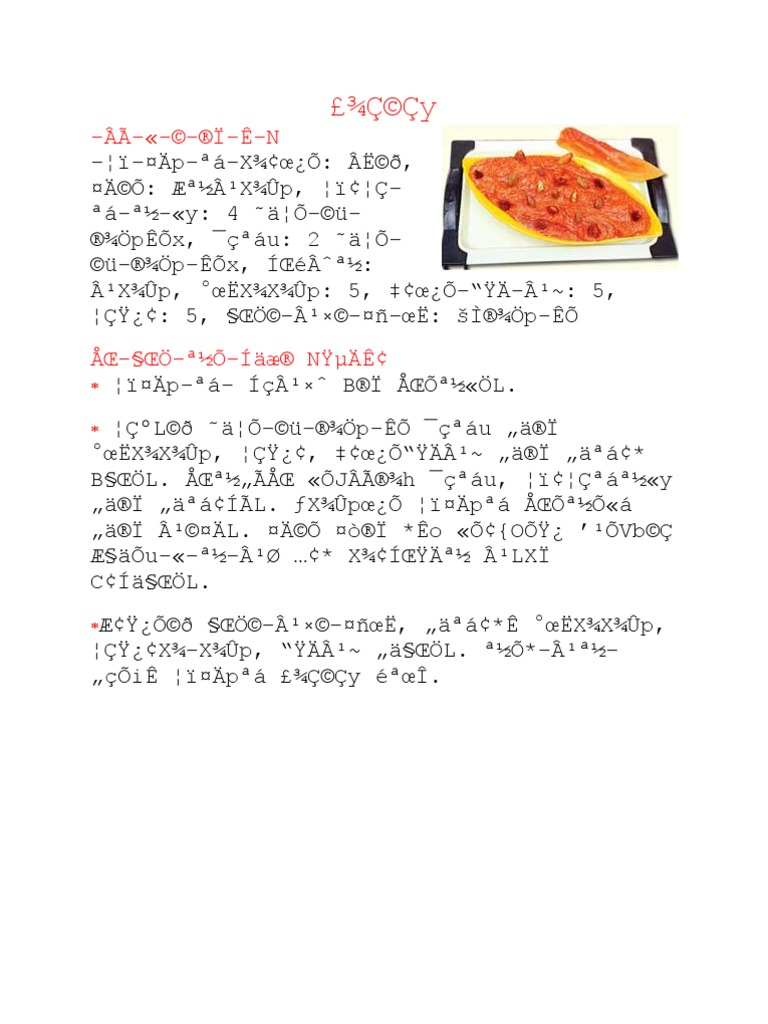 £¾Ç©Çy
-ÂÃ-«-©-®Ï-Ê-N
-¦ï-¤Äp-ªá-X¾¢œ¿Õ: ÂË©ð,
¤Ä©Õ: Æª½Â¹X¾Ûp, ¦ï¢¦Ç-
ªá-ª½-«y: 4 ˜ä¦Õ-©ü-
®¾ÖpÊÕx, ¯çªáu: 2 ˜ä¦Õ-
©ü-®¾Öp-ÊÕx, ÍŒéÂˆª½:
Â¹X¾Ûp, °œËX¾X¾Ûp: 5, ‡¢œ¿Õ-“ŸÄ-Â¹~: 5,
¦ÇŸ¿¢: 5, §ŒÖ©-Â¹×©-¤ñ-œË: šÌ®¾Öp-ÊÕ
ÅŒ-§ŒÖ-ª½Õ-Íäæ® NŸµÄÊ¢
* ¦ï¤Äp-ªá- ÍçÂ¹×ˆ B®Ï ÅŒÕª½«ÖL.
* ¦ÇºL©ð ˜ä¦Õ-©ü-®¾Öp-ÊÕ ¯çªáu „ä®Ï
°œËX¾X¾Ûp, ¦ÇŸ¿¢, ‡¢œ¿Õ“ŸÄÂ¹~ „ä®Ï „äªá¢*
B§ŒÖL. ÅŒª½„ÃÅŒ «ÕJÂÃ®¾h ¯çªáu, ¦ï¢¦Çªáª½«y
„ä®Ï „äªá¢ÍÃL. ƒX¾Ûpœ¿Õ ¦ï¤Äpªá ÅŒÕª½Õ«á
„ä®Ï Â¹©¤ÄL. ¤Ä©Õ ¤ò®Ï *Êo «Õ¢{OÕŸ¿ ’¹ÕVb©Ç
Æ§äÕu-«-ª½-Â¹Ø …¢* X¾¢ÍŒŸÄª½ Â¹LXÏ
C¢Íä§ŒÖL.
*Æ¢Ÿ¿Õ©ð §ŒÖ©-Â¹×©-¤ñœË, „äªá¢*Ê °œËX¾X¾Ûp,
¦ÇŸ¿¢X¾-X¾Ûp, “ŸÄÂ¹~ „ä§ŒÖL. ª½Õ*-Â¹ª½-
„çÕiÊ ¦ï¤Äpªá £¾Ç©Çy éªœÎ.